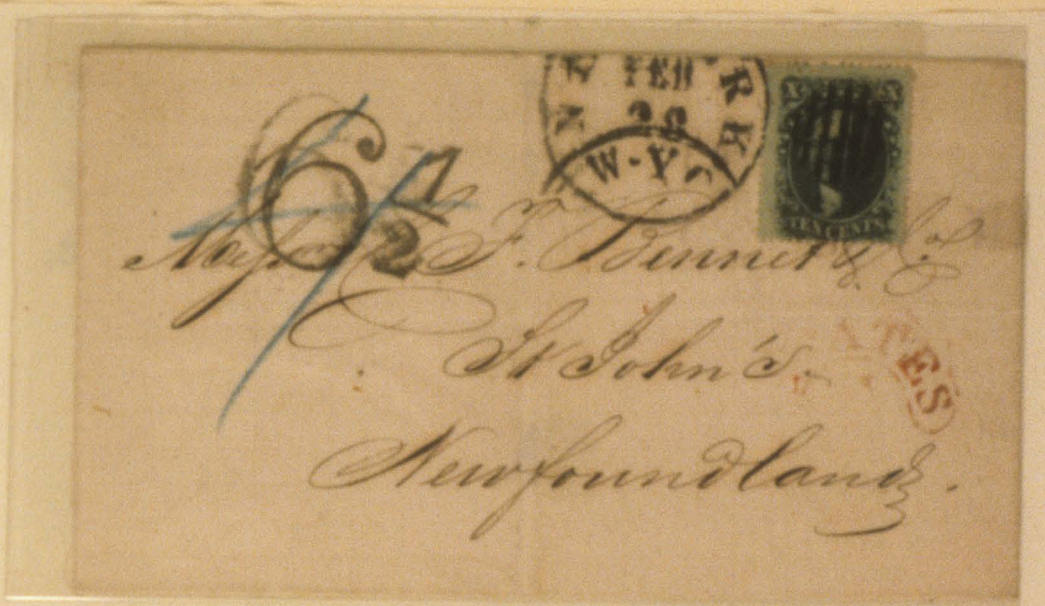 NEW YORK
FEB
28
X X
TEN CENTS
6 1/2
Messrs C. F. Bennett & Co.
St John's.
ATES
Newfoundland.